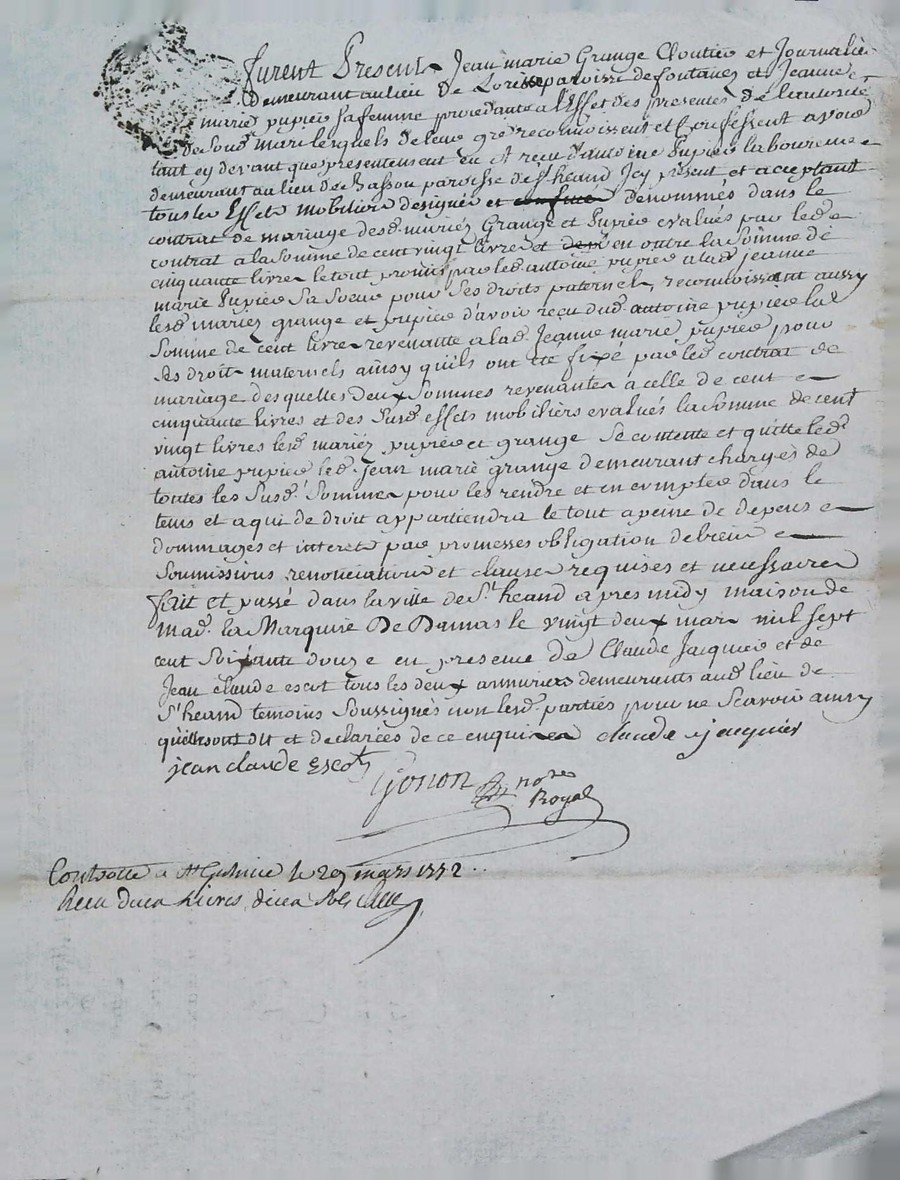 furent Present Jean marie Grange Cloutier et Journalier
demeurant au lieu de paroisse de fontanez et Jeanne
marie pupier sa femme procedante a l'Effet des presentes de l'autorité
de Sond. mari lesquels de leur gré reconnoissent et Confessent avoir
tant cy devant que presentement eu et recu d'antoine pupier laboureur
demeurant au lieu de Basson paroisse de St heand Jcy present et acceptant
tous les Effets mobiliers designés et denommés dans le
contrat de mariage desd. mariéz Grange et pupier evalués par led.
contrat a la Somme de cent vingt livres et en outre la Somme de
cinquante livres le tout promis par led. antoine pupier a lad. jeanne
marie pupier Sa Soeur pour Ses droits paternels, reconnoissant aussy
lesd. mariéz grange et pupier d'avoir reçu dud. antoine pupier la
Somme de cent livres revenante a lad. Jeanne marie pupier pour
Ses droits maternels ainsy qu'ils ont été fixé par led. contrat de
mariage desquelles deux Sommes revenantes à celle de cent
cinquante livres et des Susd. effets mobiliers evalués la Somme de cent
vingt livres lesd. mariéz pupier et grange Se contente et quitte led.
antoine pupier led. jean marie grange demeurant chargés de
toutes les Susd. Sommes pour les rendre et en compter dans le
tems et a qui de droit appartiendra le tout a peine de depens
dommages et interets par promesses obligation de biens
Soumissions renonciations et clauses requises et necessaires
fait et passé dans la ville de St heand apres midy maison de
mad. la Marquise De Damas le vingt deux mars mil sept
cent Soixante douze en presence de Claude Jacquier et de
Jean claude escot tous les deux armuriers demeurants aud. lieu de
St heand temoins Soussignés non lesd. parties pour ne Scavoir ainsy
qu'elles ont dit et declarées de ce enquises claude jacquier
jean claude Escot
Gonon nore
Royal
Controllé a St le 29 mars 1772
Recu